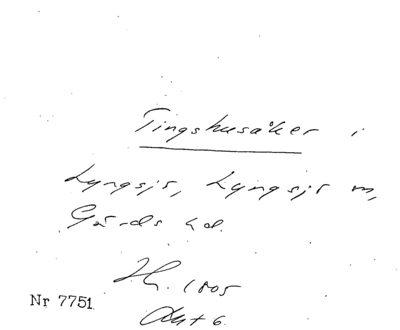 Tingshusåker i
Lyngsjö, Lyngsjö sn,
Gärds hd.
1805
Nr 7751
Akt 6.